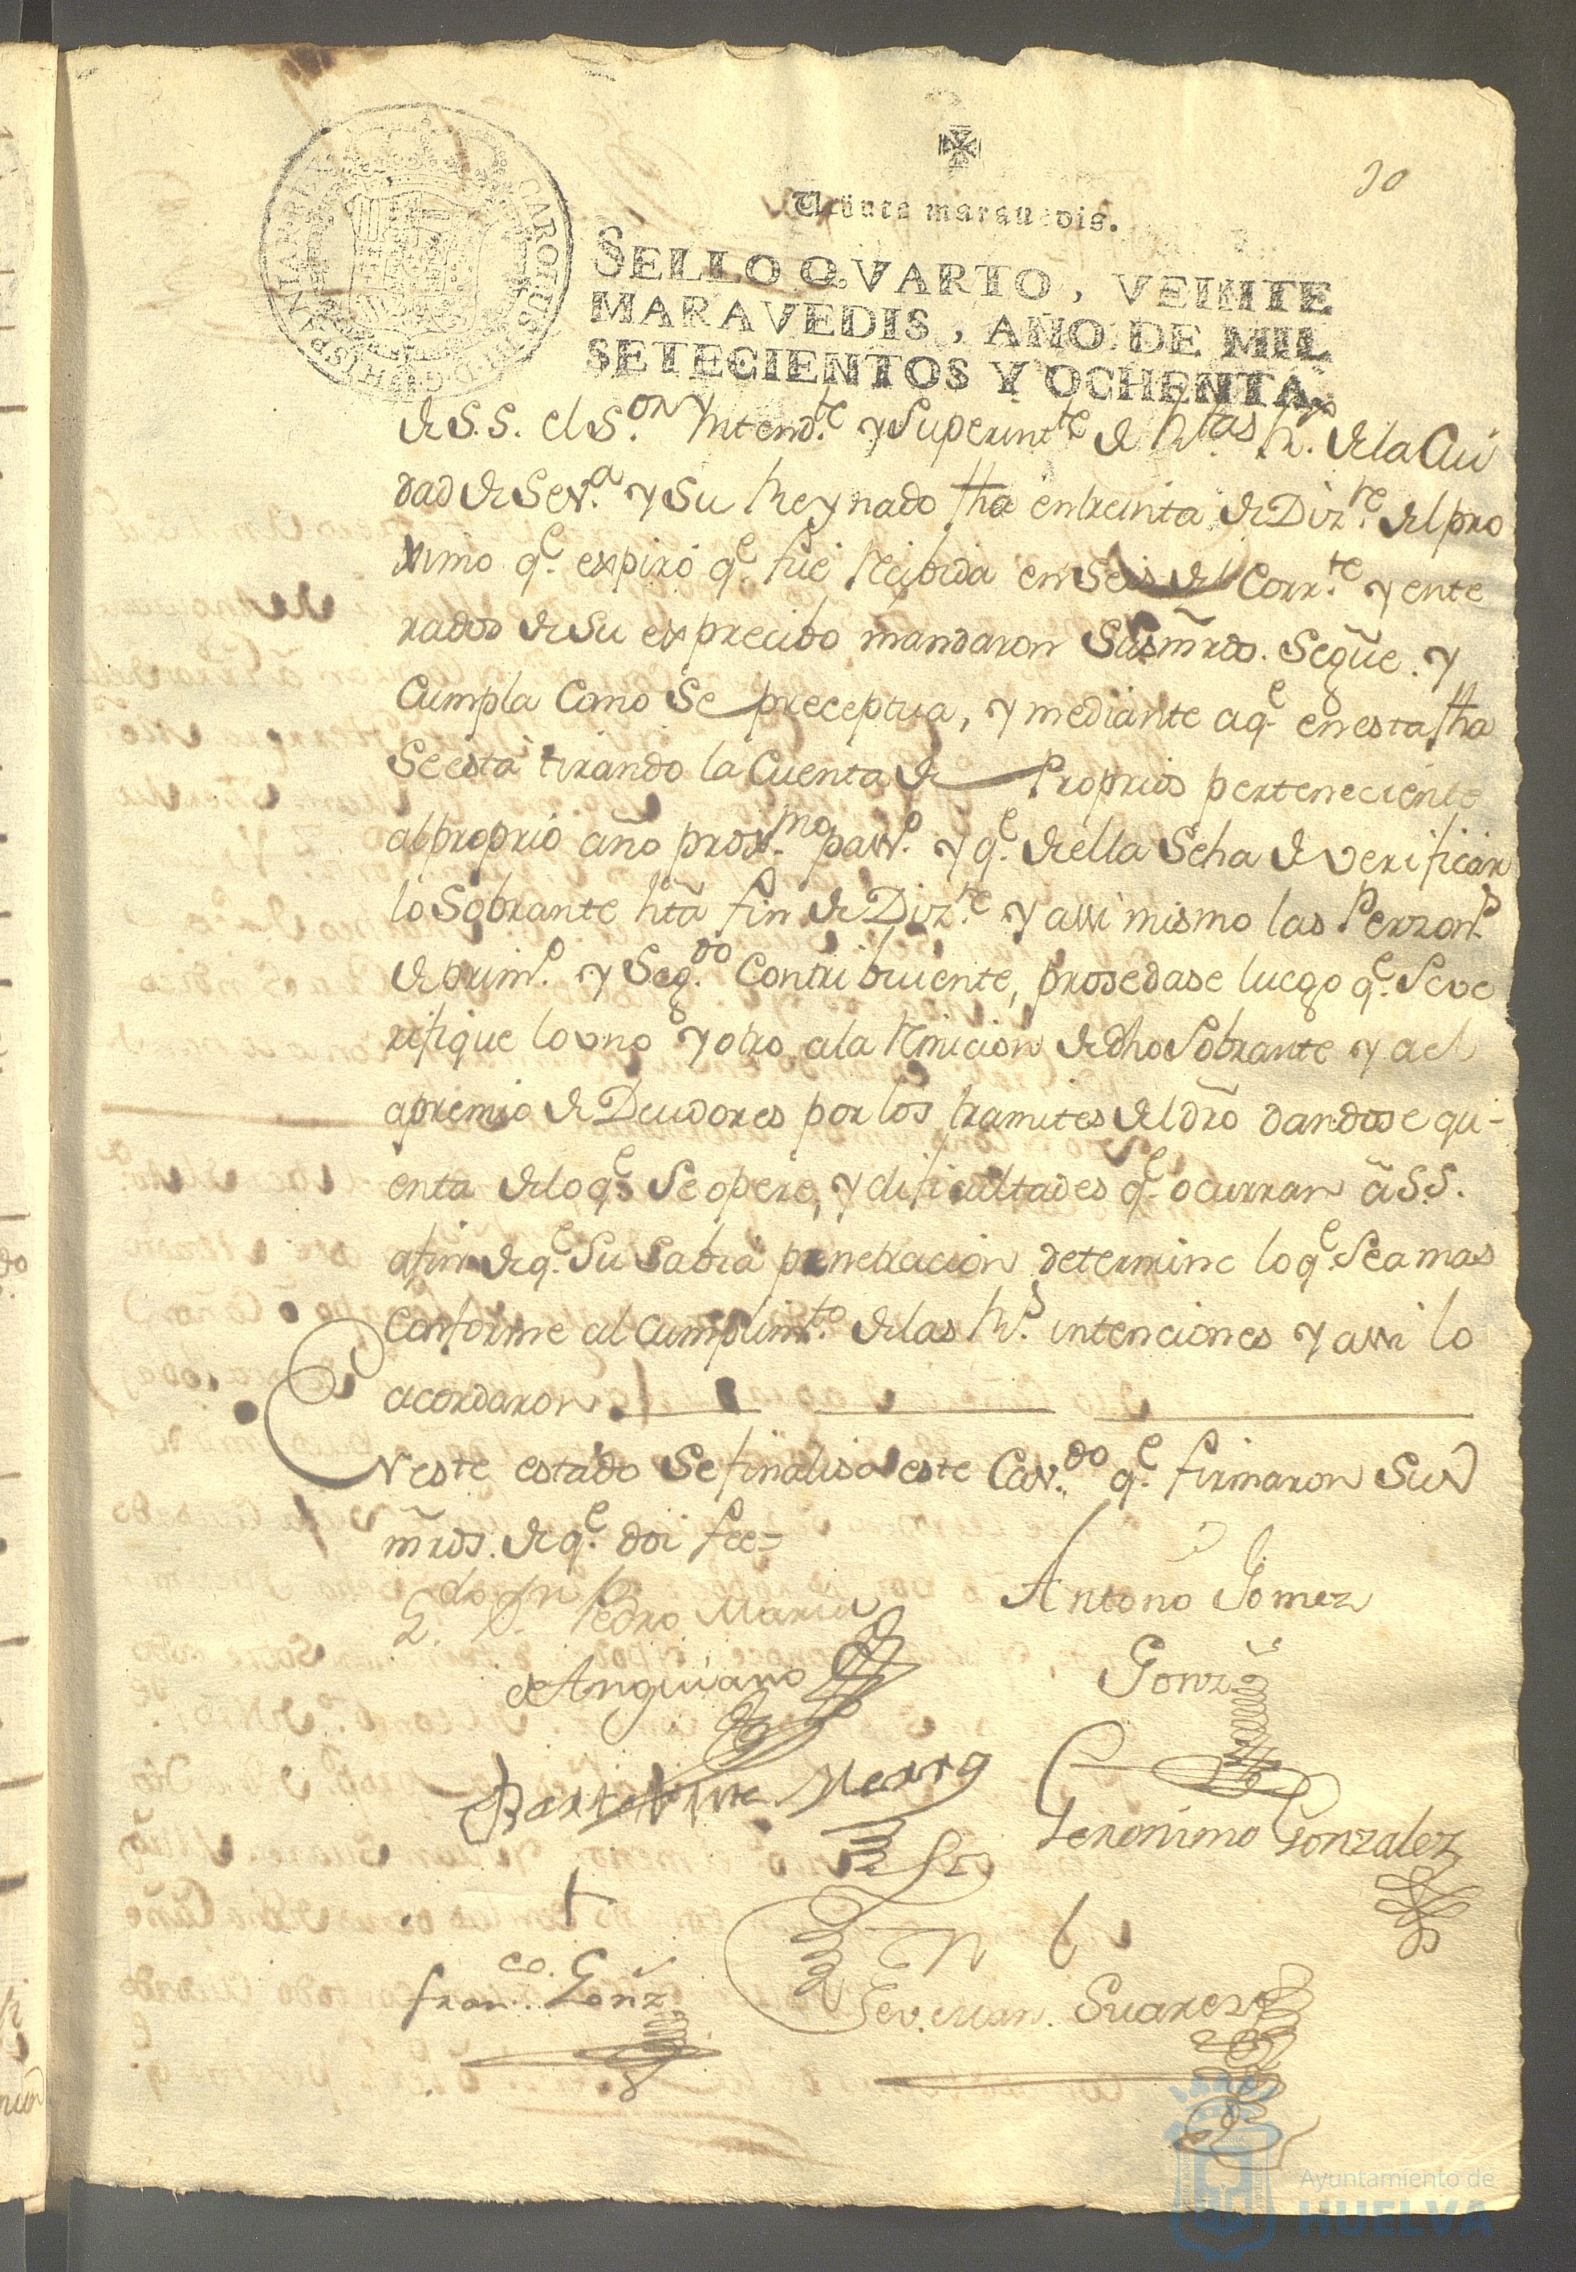 30
Veinte maravedis.
SELLO QVARTO, VEINTE
MARAVEDIS, AÑO DE MIL
SETECIENTOS Y OCHENTA.
CAROLUS III D G HISPANIAR REX
de S.S. el S.ᵒʳ Intend.ᵗᵉ y Superint.ᵗᵉ de R.ᵗᵃˢ R.ˢ de la Ciu
dad de Sev.ᵃ y su Reynado fha en treinta de Diz.ʳᵉ del pro
ximo q.ᵉ expiró q.ᵉ fue recibida en Seis del Corr.ᵗᵉ y ente
rados de su exprecido mandaron Sus mrds. Se gũe. y
Cumpla Como Se preceptua, y mediante a q.ᵉ en esta fha
Se está tirando la Cuenta de Proprios perteneciente
al proprio año prox.ᵐᵒ pass.ᵒ y q.ᵉ de ella Se ha de verificar
lo Sobrante hta fin de Diz.ʳᵉ y assi mismo las Perzon.ˢ
de prim.ᵒ y Seg.ᵈᵒ Contribuiente, prosedase luego q.ᵉ Seve
rifique lo uno y otro a la Rmicion de dho Sobrante y a el
apremio de Deudores por los tramites del dro dandose qu-
enta de lo q.ᵉ Se opere, y dificultades q.ᵉ ocurran a S.S.
afin de q.ᵉ Su Sabia penetracion determine lo q.ᵉ Sea mas
Conforme al Cumplim.ᵗᵒ de las R.ˢ intenciones y assi lo
acordaron.
En este estado Se finalisó este Cav.ᵈᵒ q.ᵉ firmaron Sus
mrds. de q.ᵉ doi fee=
L.ᵈᵒ D.ⁿ Pedro Maria
de Anguiano
Antonio Gomez
Gonz
Bartolome Merig
Geronimo Gonzalez
fran.ᶜᵒ Gonz
Sev. Man. Suarez
Ayuntamiento de
HUELVA